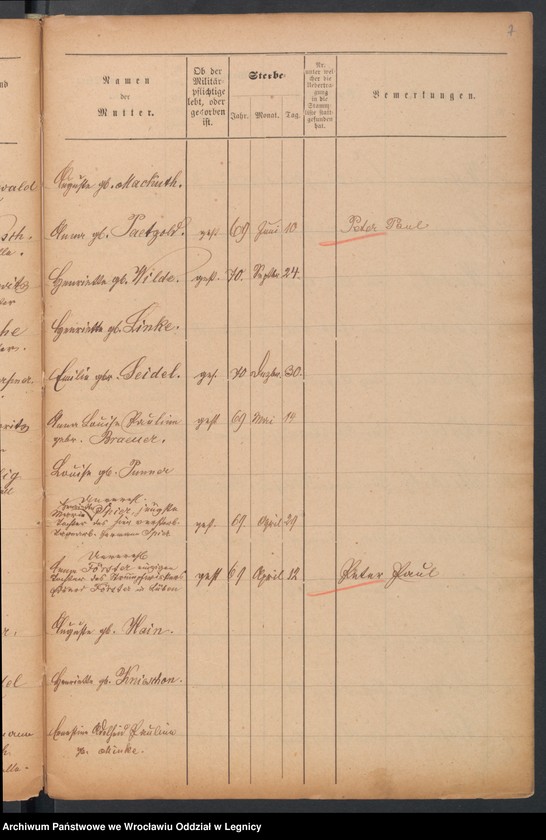 7
Namen
der
Mutter.
Ob der
Militär-
pflichtige
lebt, oder
gestorben
ist.
Sterbe-
Jahr. Monat. Tag.
Nr.
unter wel
cher die
Uebertra-
gung
in die
Stamm
rolle statt-
gefunden
hat.
Bemerkungen.
Auguste gb. Machuth.
Anna gb. Paetzold. gest 69 Juni 10 Peter Paul
Henriette gb. Wilde. gest. 70. Septbr 24.
Henriette gb. Linke.
Emilie gbr. Seidel. gest. 70 Dezbr. 30.
Anna Louise Pauline gest 69 Mai 14
gebr. Bramer.
Louise gb.
Unverehl.
Spier, jüngste
Tochter des hier verstorb.
gest. 69. April 29
Unverehl.
Förster einzigen
Tochter des
Förster in Lüben
gest 69 April 12 Peter Paul
Auguste gb. Hain.
Henriette gb.
Ernestine Adelheid Pauline
gb. Minke.
Archiwum Państwowe we Wrocławiu Oddział w Legnicy